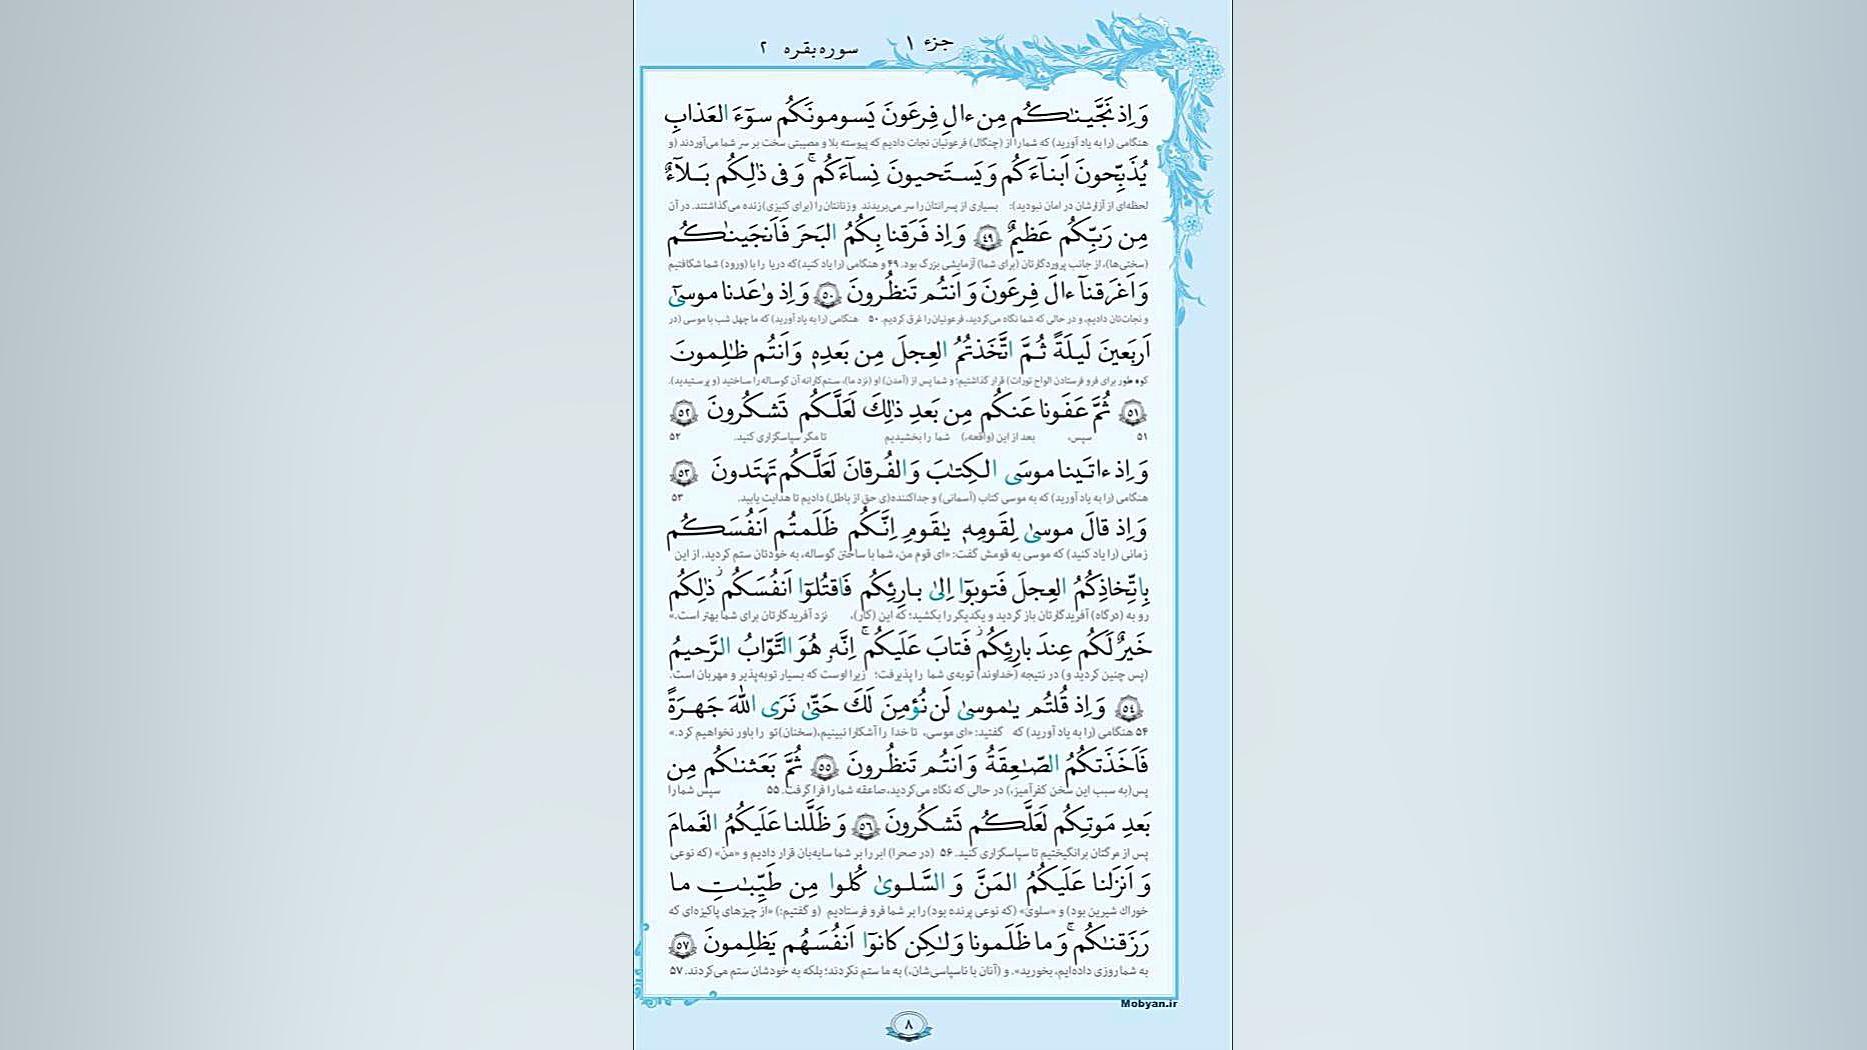 جزء ۱
سوره بقره ۲
وَ اِذ نَجَّینٰکُم مِن ءالِ فِرعَونَ یَسومونَکُم سوٓءَ العَذابِ
هنگامی (را به یاد آورید) که شما را از (چنگال) فرعونیان نجات دادیم که پیوسته بلا و مصیبتی سخت بر سر شما می‌آوردند (و
یُذَبِّحونَ اَبنآءَکُم وَ یَستَحیونَ نِسآءَکُم ۚ وَ فی ذٰلِکُم بَلآءٌ
لحظه‌ای از آزارشان در امان نبودید): بسیاری از پسرانتان را سر می‌بریدند و زنانتان را (برای کنیزی) زنده می‌گذاشتند. در آن
مِن رَبِّکُم عَظیمٌ ۴۹ وَ اِذ فَرَقنا بِکُمُ البَحرَ فَاَنجَینٰکُم
(سختی‌ها)، از جانب پروردگارتان (برای شما) آزمایشی بزرگ بود. ۴۹ و هنگامی (را یاد کنید) که دریا را با (ورود) شما شکافتیم
وَ اَغرَقنآ ءالَ فِرعَونَ وَ اَنتُم تَنظُرونَ ۵۰ وَ اِذ وٰعَدنا موسیٰٓ
و نجات‌تان دادیم، و در حالی که شما نگاه می‌کردید، فرعونیان را غرق کردیم. ۵۰ هنگامی (را به یاد آورید) که ما چهل شب با موسی (در
اَربَعینَ لَیلَةً ثُمَّ اتَّخَذتُمُ العِجلَ مِن بَعدِهٖ وَ اَنتُم ظٰلِمونَ
کوه طور برای فرو فرستادن الواح تورات) قرار گذاشتیم؛ و شما پس از (آمدن) او (نزد ما)، ستم‌کارانه آن گوساله را ساختید (و پرستیدید).
۵۱ ثُمَّ عَفَونا عَنکُم مِن بَعدِ ذٰلِکَ لَعَلَّکُم تَشکُرونَ ۵۲
۵۱ سپس، بعد از این (واقعه،) شما را بخشیدیم تا مگر سپاسگزاری کنید. ۵۲
وَ اِذ ءاتَینا موسَی الکِتٰبَ وَ الفُرقانَ لَعَلَّکُم تَهتَدونَ ۵۳
هنگامی (را به یاد آورید) که به موسی کتاب (آسمانی) و جداکننده(ی حق از باطل) دادیم تا هدایت یابید. ۵۳
وَ اِذ قالَ موسیٰ لِقَومِهٖ یٰقَومِ اِنَّکُم ظَلَمتُم اَنفُسَکُم
زمانی (را یاد کنید) که موسی به قومش گفت: «ای قوم من، شما با ساختن گوساله، به خودتان ستم کردید. از این
بِاتِّخاذِکُمُ العِجلَ فَتوبوٓا اِلیٰ بارِئِکُم فَاقتُلوٓا اَنفُسَکُم ز ذٰلِکُم
رو به (درگاه) آفریدگارتان باز گردید و یکدیگر را بکشید؛ که این (کار)، نزد آفریدگارتان برای شما بهتر است.»
خَیرٌ لَکُم عِندَ بارِئِکُم ز فَتابَ عَلَیکُم ۚ اِنَّهٗ هُوَ التَّوّابُ الرَّحیمُ
(پس چنین کردید و) در نتیجه (خداوند) توبه‌ی شما را پذیرفت؛ زیرا اوست که بسیار توبه‌پذیر و مهربان است.
۵۴ وَ اِذ قُلتُم یٰموسیٰ لَن نُؤمِنَ لَکَ حَتّیٰ نَرَی اللّٰهَ جَهرَةً
۵۴ هنگامی (را به یاد آورید) که گفتید: «ای موسی، تا خدا را آشکارا نبینیم، (سخنان) تو را باور نخواهیم کرد.»
فَاَخَذَتکُمُ الصّٰعِقَةُ وَ اَنتُم تَنظُرونَ ۵۵ ثُمَّ بَعَثنٰکُم مِن
پس(به سبب این سخن کفرآمیز،) در حالی که نگاه می‌کردید، صاعقه شما را فرا گرفت. ۵۵ سپس شما را
بَعدِ مَوتِکُم لَعَلَّکُم تَشکُرونَ ۵۶ وَ ظَلَّلنا عَلَیکُمُ الغَمامَ
پس از مرگتان برانگیختیم تا سپاسگزاری کنید. ۵۶ (در صحرا) ابر را بر شما سایه‌بان قرار دادیم و «مَنّ» (که نوعی
وَ اَنزَلنا عَلَیکُمُ المَنَّ وَ السَّلویٰ کُلوا مِن طَیِّبٰتِ ما
خوراک شیرین بود) و «سلویٰ» (که نوعی پرنده بود) را بر شما فرو فرستادیم (و گفتیم:) «از چیزهای پاکیزه‌ای که
رَزَقنٰکُم ۚ وَ ما ظَلَمونا وَ لٰکِن کانوٓا اَنفُسَهُم یَظلِمونَ ۵۷
به شما روزی داده‌ایم، بخورید». و (آنان با ناسپاسی‌شان،) به ما ستم نکردند؛ بلکه به خودشان ستم می‌کردند. ۵۷
Mobyan.ir
۸